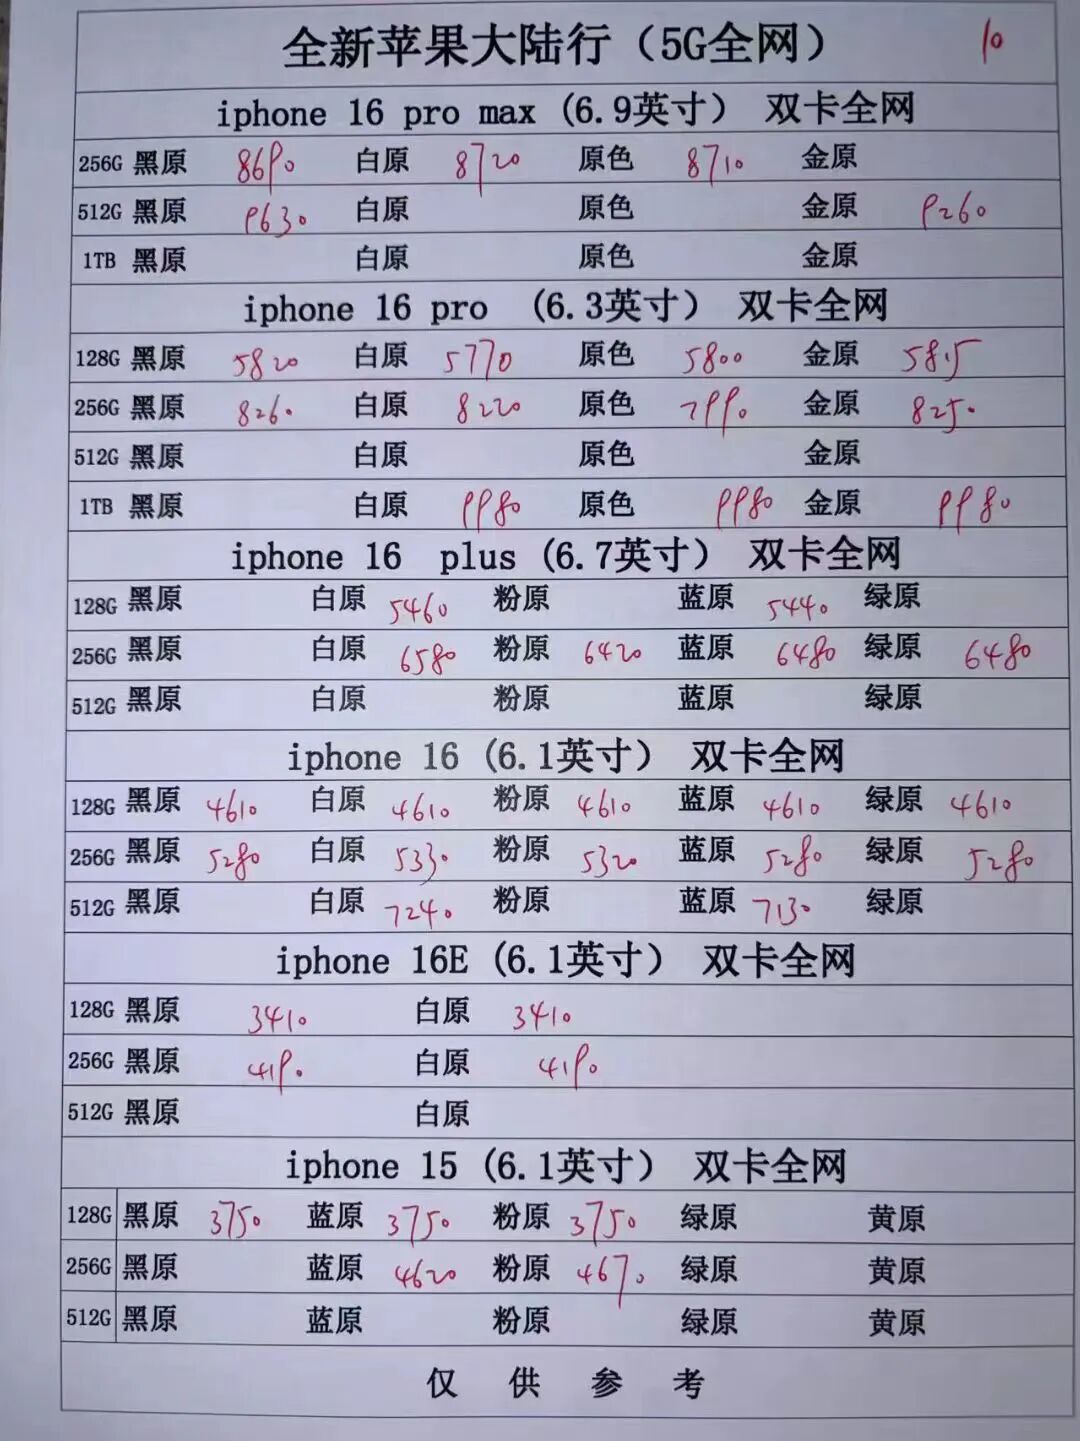 全新苹果大陆行（5G全网） 10
iphone 16 pro max (6.9英寸） 双卡全网
256G 黑原 8690 白原 8720 原色 8710 金原
512G 黑原 9630 白原 原色 金原 9260
1TB 黑原 白原 原色 金原
iphone 16 pro (6.3英寸） 双卡全网
128G 黑原 5820 白原 5770 原色 5800 金原 5815
256G 黑原 8260 白原 8220 原色 7990 金原 8250
512G 黑原 白原 原色 金原
1TB 黑原 白原 9980 原色 9980 金原 9980
iphone 16 plus (6.7英寸） 双卡全网
128G 黑原 白原 5460 粉原 蓝原 5440 绿原
256G 黑原 白原 6580 粉原 6420 蓝原 6480 绿原 6480
512G 黑原 白原 粉原 蓝原 绿原
iphone 16 (6.1英寸） 双卡全网
128G 黑原 4610 白原 4610 粉原 4610 蓝原 4610 绿原 4610
256G 黑原 5280 白原 5330 粉原 5320 蓝原 5280 绿原 5280
512G 黑原 白原 7240 粉原 蓝原 7130 绿原
iphone 16E (6.1英寸） 双卡全网
128G 黑原 3410 白原 3410
256G 黑原 4190 白原 4190
512G 黑原 白原
iphone 15 (6.1英寸） 双卡全网
128G 黑原 3750 蓝原 3750 粉原 3750 绿原 黄原
256G 黑原 蓝原 4620 粉原 4670 绿原 黄原
512G 黑原 蓝原 粉原 绿原 黄原
仅 供 参 考